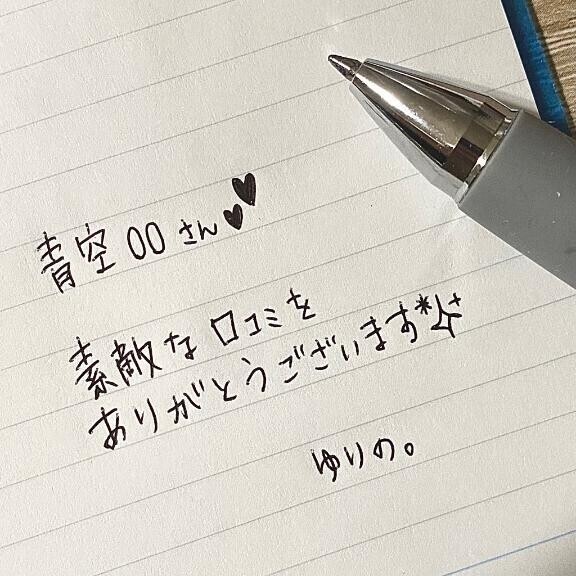 青空〇〇さん♥♥
素敵な口コミを
ありがとうございます*☆
ゆりの。